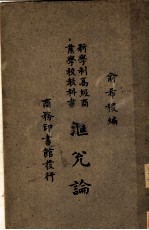 俞希稷編
匯兌論
新學制高級商
業學校教科書
商務印書館發行